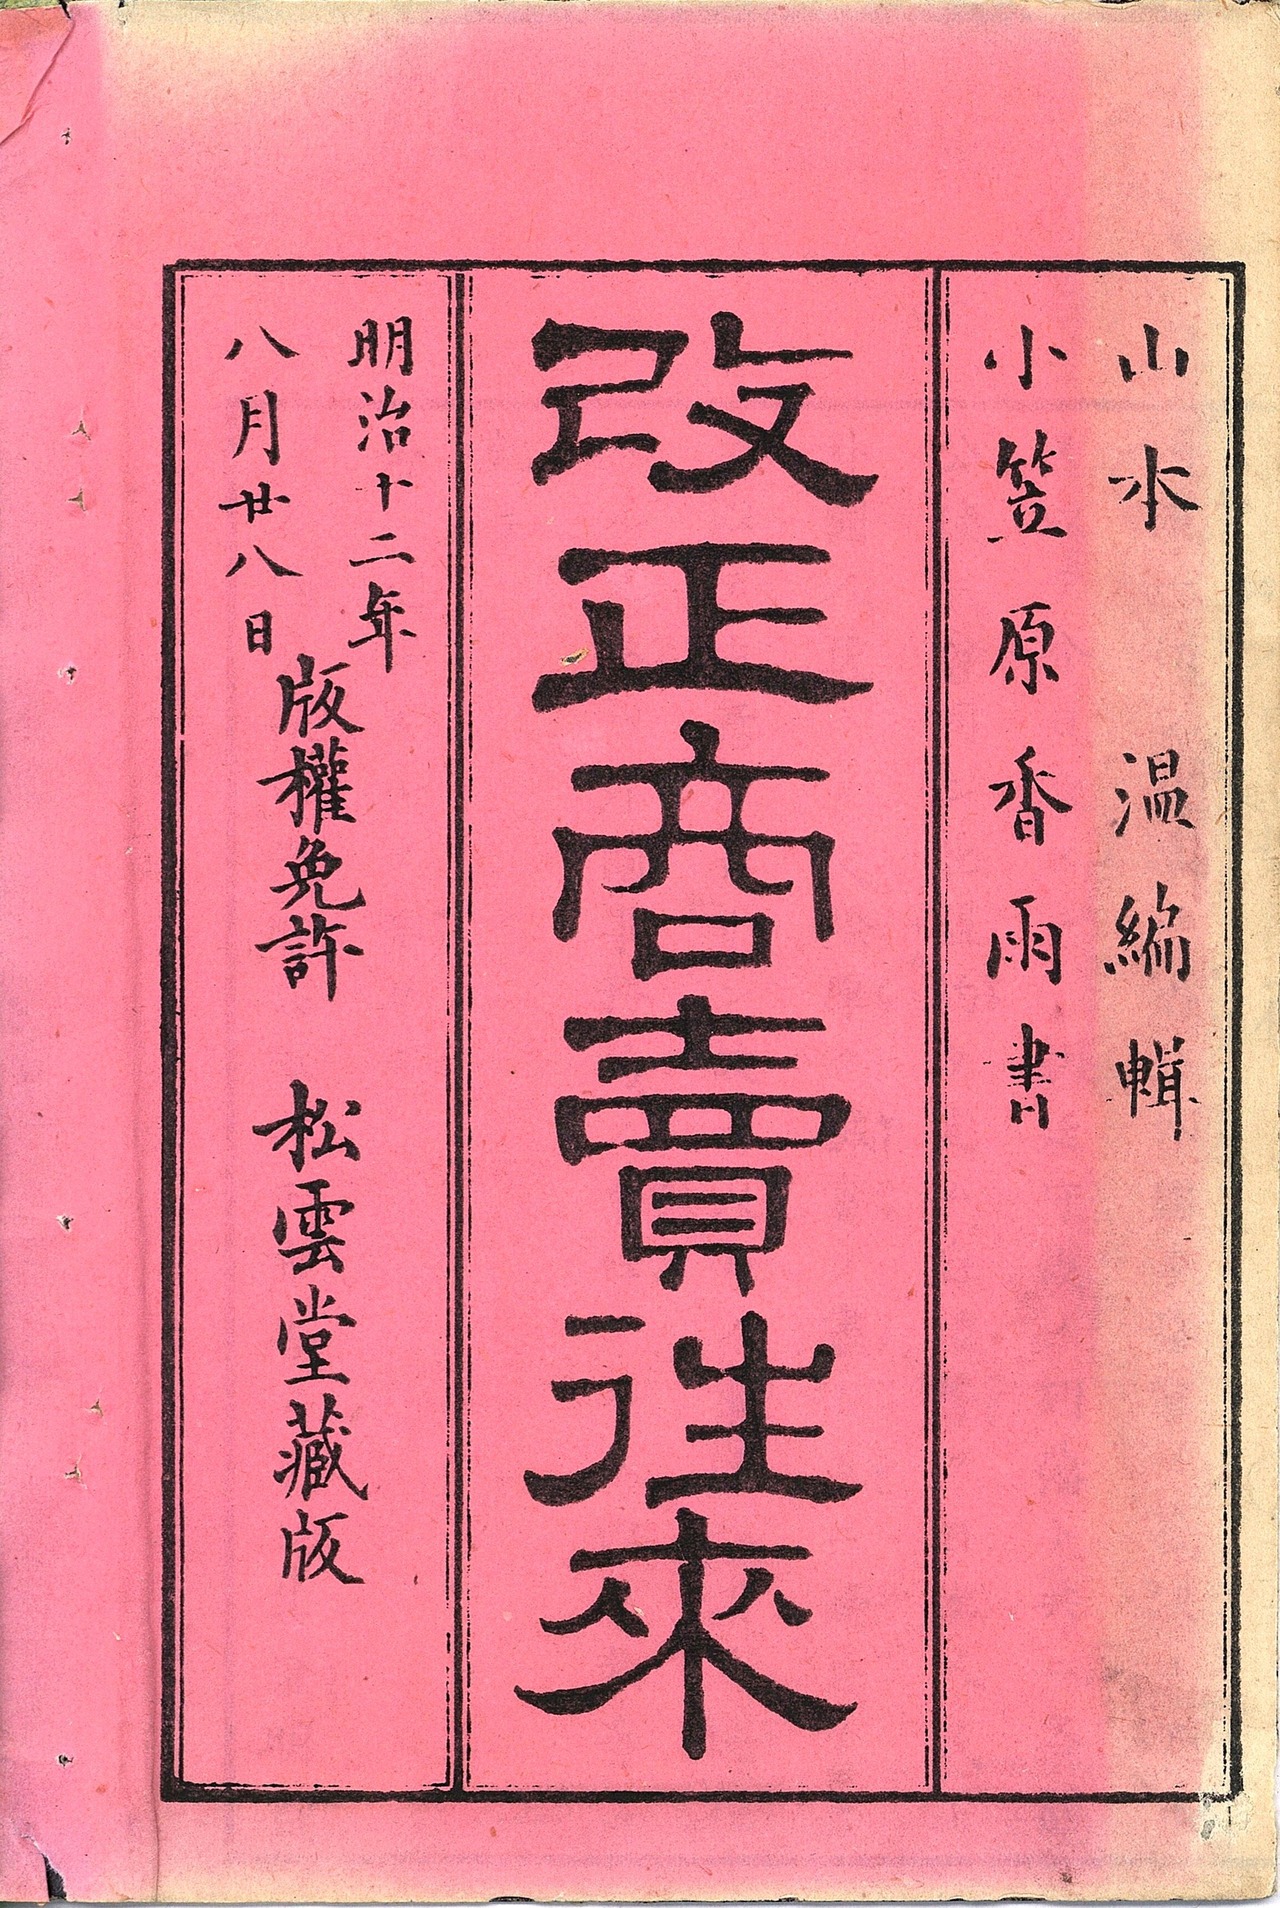 山本　温編輯
小笠原香雨書
改正商賣往來
明治十二年
八月廿八日
版權免許　松雲堂藏版